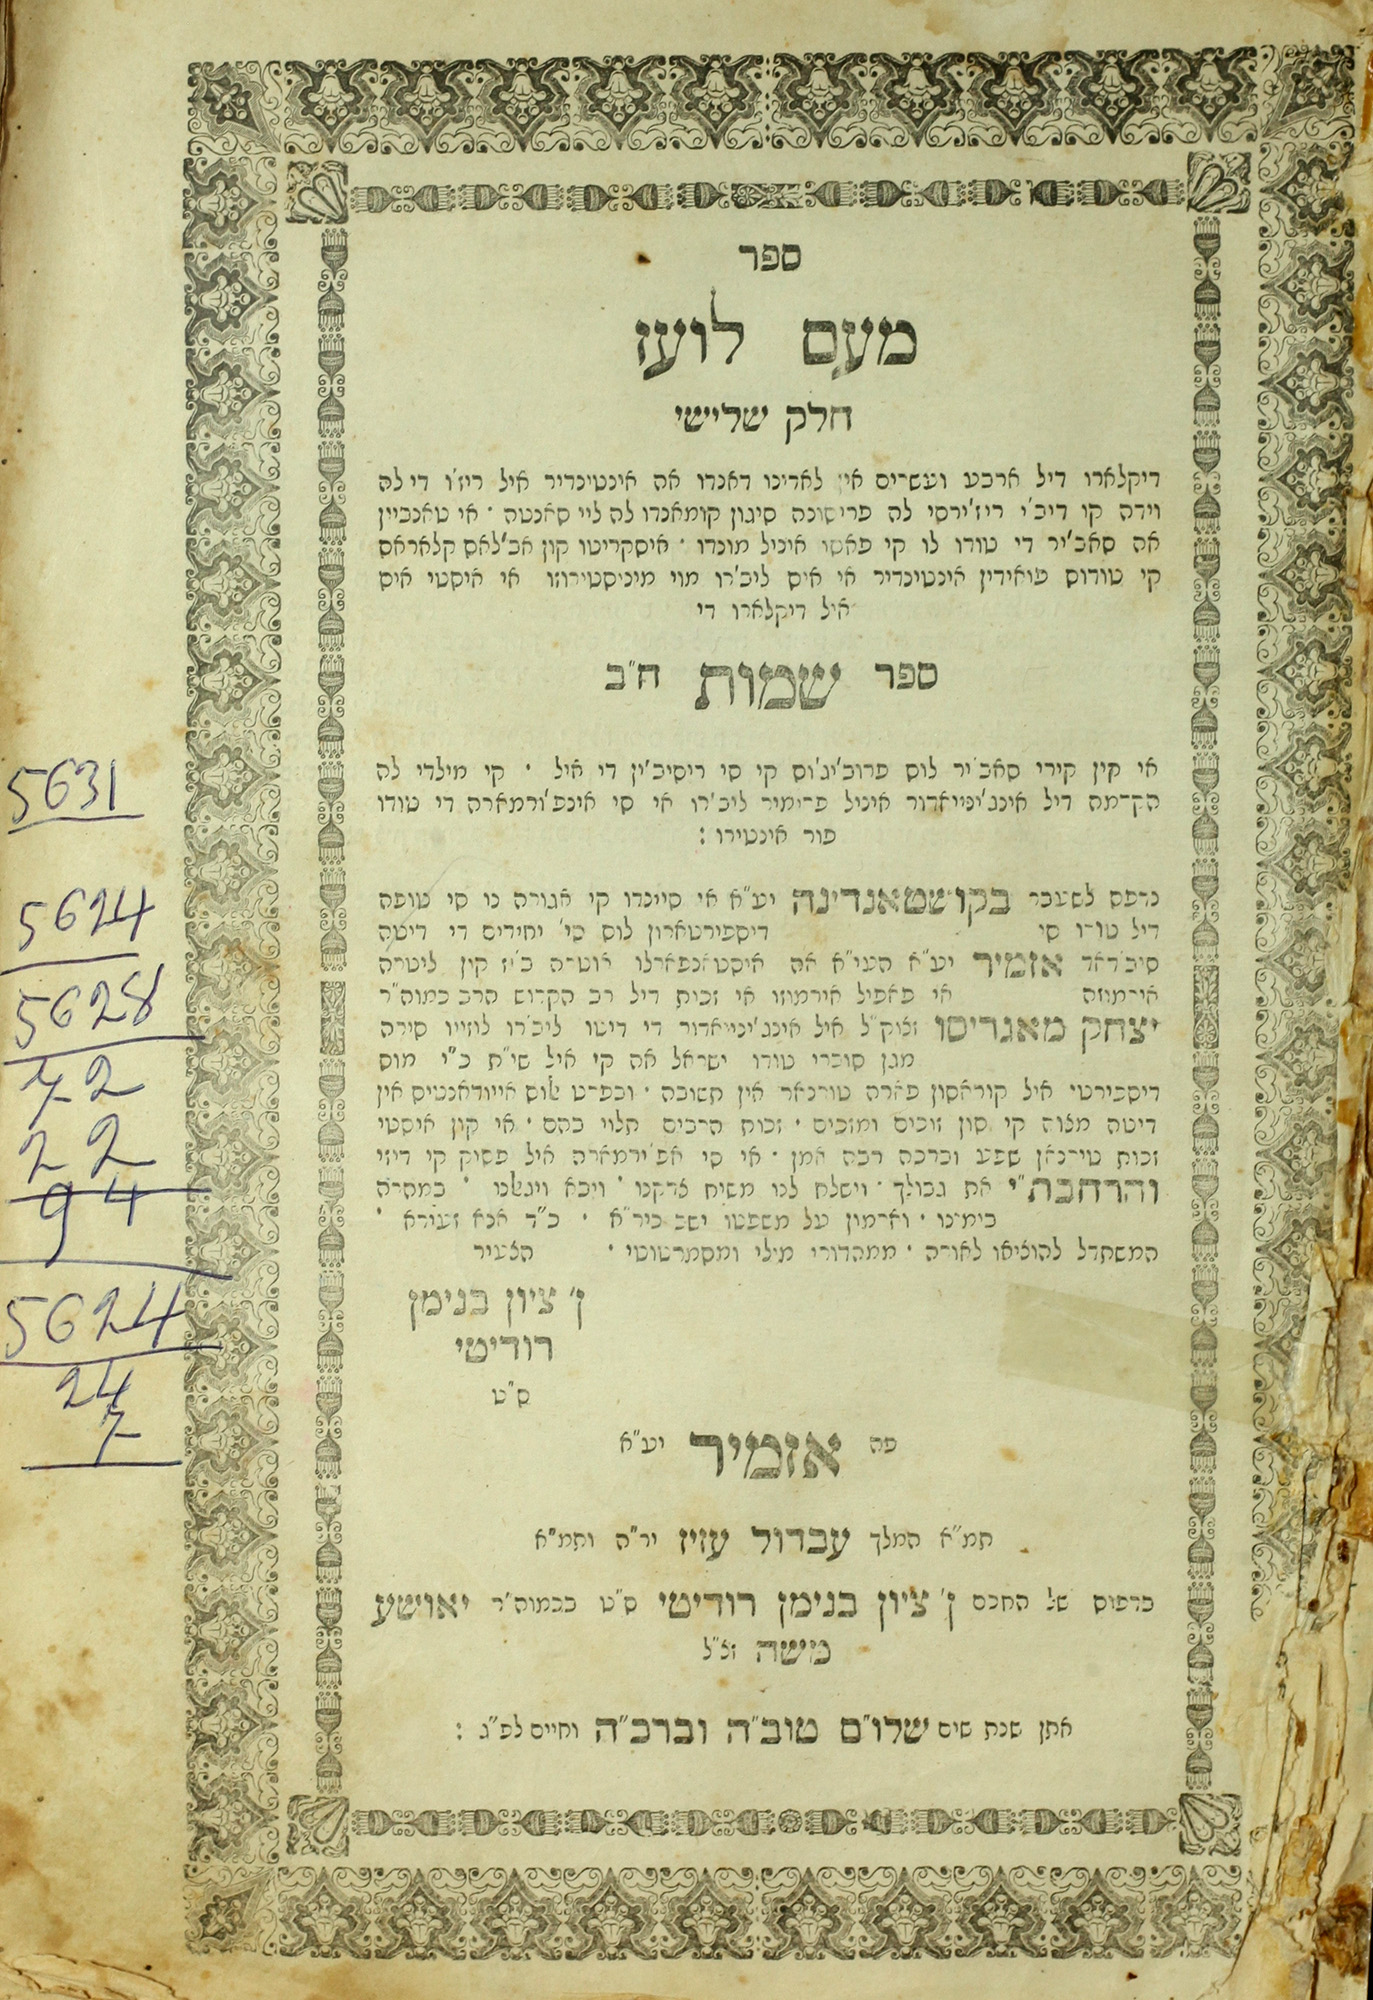 ספר
מעם לועז
חלק שלישי
דיקלארו דיל ארבע ועשרים אין לאדינו דאנדו אה אינטינדיר איל ריז'ו די לה
וידה קו דיב'י ריז'ירסי לה פרישונה סיגון קומאנדו לה ליי סאנטה · אי טאנביין
אה סאב'יר די טודו לו קי פאסו איניל מונדו · איסקריטו קון אב'לאס קלאראס
קי טודוס פואידין אינטינדיר אי איס ליב'רו מוי מיניסטירוזו אי איסטי איס
איל דיקלארו די
ספר שמות ח"ב
אי קין קירי סאב'יר לוס פרוב'יג'וס קי סי ריסיב'ין די איל · קי מילדי לה
הקדמה דיל אינג'יניייאדור איניל פרימיר ליב'רו אי סי אינפ'ורמארה די טודו
פור אינטירו :
נדפס לשעבר בקושטאנדינה יע"א אי סיינדו קי אגורה נו סי טופה
דיל טודו סי דיספירטארון לוס טי' יחידים די דיטה
סיב'דאד אזמיר יע"א העי"א אה איסטאנפארלו אוטרה ב'יז קון ליטרה
אירמוזה אי פאפיל אירמוזו אי זכות דיל רב הקדוש הרב כמוה"ר
יצחק מאגריסו זצוק"ל איל אינג'יניייאדור די דיטו ליב'רו לוזייו סירה
מגן סוברי טודו ישראל אה קי איל שי"ת ב"י מוס
דיספירטי איל קוראסון פארה טורנאר אין תשובה · ובפרט לוס אייודאנטיס אין
דיטה מצוה קי סון זוכים ומזכים · זכות הרבים תלוי בהם · אי קון איסטי
זכות טירנאן שפע וברכה רבה אמן · אי סי אפ'ירמארה איל פסוק קי דיזי
והרחבת"י את גבולך · וישלח לנו משיח צדקנו · ויבא ויגאלנו · במהרה
בימינו · וארמון על משפטו ישב כיר"א · כ"ד אנא זעירא ·
המשתדל להוציאו לאורה · ממהדורי מילי ומסמרטוטי · הצעיר
ן' ציון בנימן
רודיטי
ס"ט
פה אזמיר יע"א
תמ"א המלך עבדול עזיז יר"ה ותמ"א
בדפוס של החכם ן' ציון בנימן רודיטי ס"ט בכמוה"ר יאושע
משה זצ"ל
אתן שנת שים שלו"ם טוב"ה וברכ"ה וחיים לפ"ג :
5631
5624
5628
72
22
94
5624
24
7